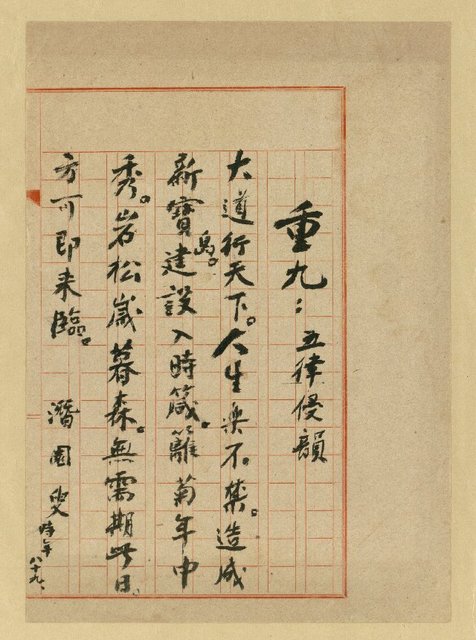 重九：五律侵韻
大道行天下。人生楽不禁。造成
新寶島。建設入時箴。籬菊年中
秀。岩松歲暮森。無需期此日。
方可即来臨。潛園叟時年八十九、